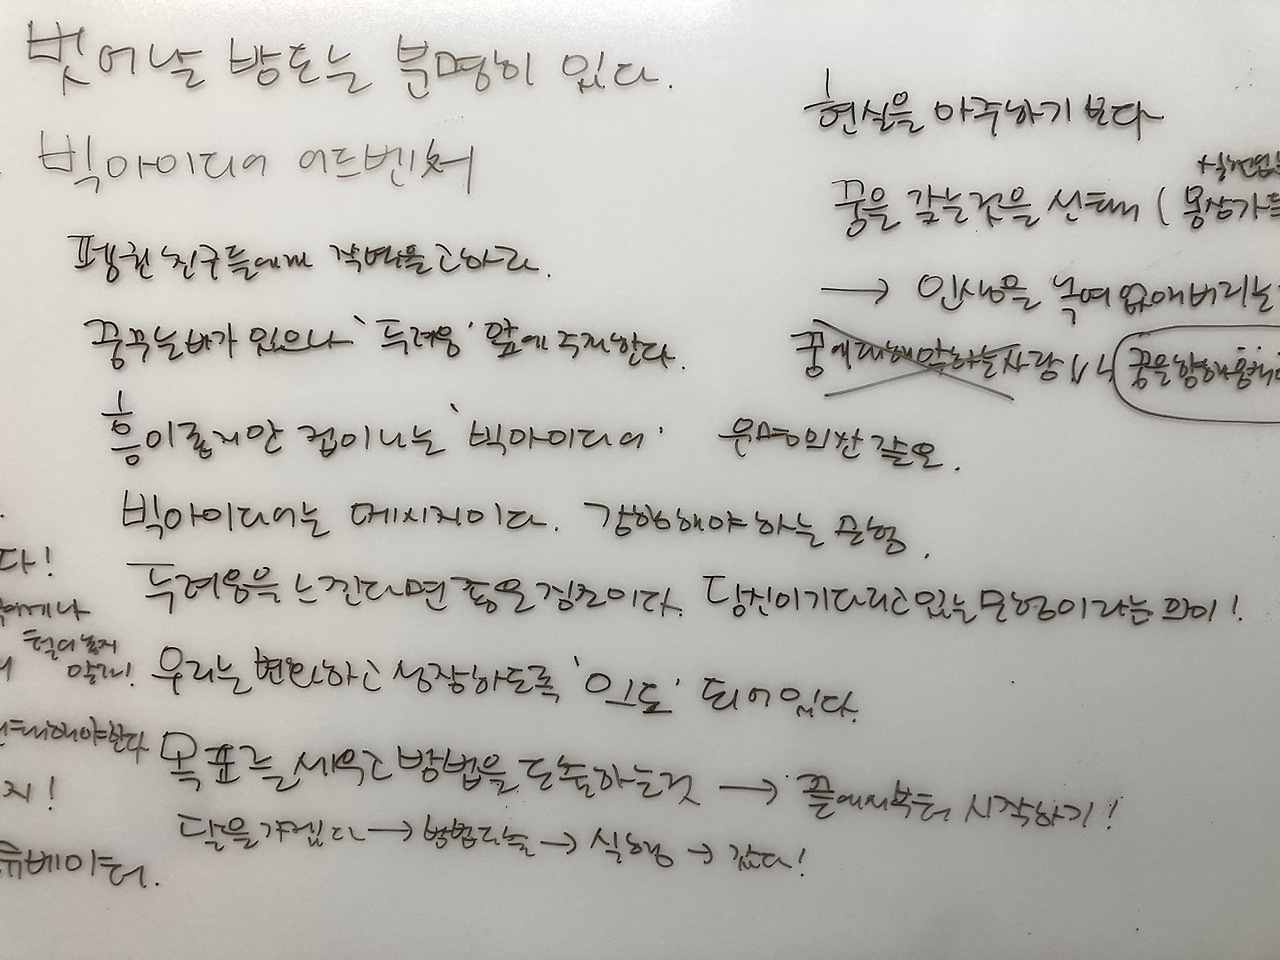 벗어날 방도는 분명히 있다.
빅아이디어 어드벤처
펭귄 친구들에게 작별을 고하라.
꿈꾸는바가 있으나 '두려움' 앞에 주저한다.
흥미롭지만 겁이나는 '빅아이디어'
빅아이디어는 메시지이다. 감행해야 하는 모험.
두려움을 느낀다면 좋은 징조이다. 당신이기다리고있는모험이라는 의미!
우리는 변화하고 성장하도록 '의도' 되어있다.
목표를 세우고 방법을 도출하는것 → 끝에서부터 시작하기!
달을가겠다 → 방법도출 → 실행 → 갔다!
현실을 마주하기 보다
꿈을 갖는것을 선택해 ( 몽상가들
+실현없는
→ 인생을 녹여 없애버리는
꿈에대해말하는사람 VS 꿈을향해
운명의산 갈로.
다!
털어놓지
말라!
선택해야한다
지!
큐베이터.